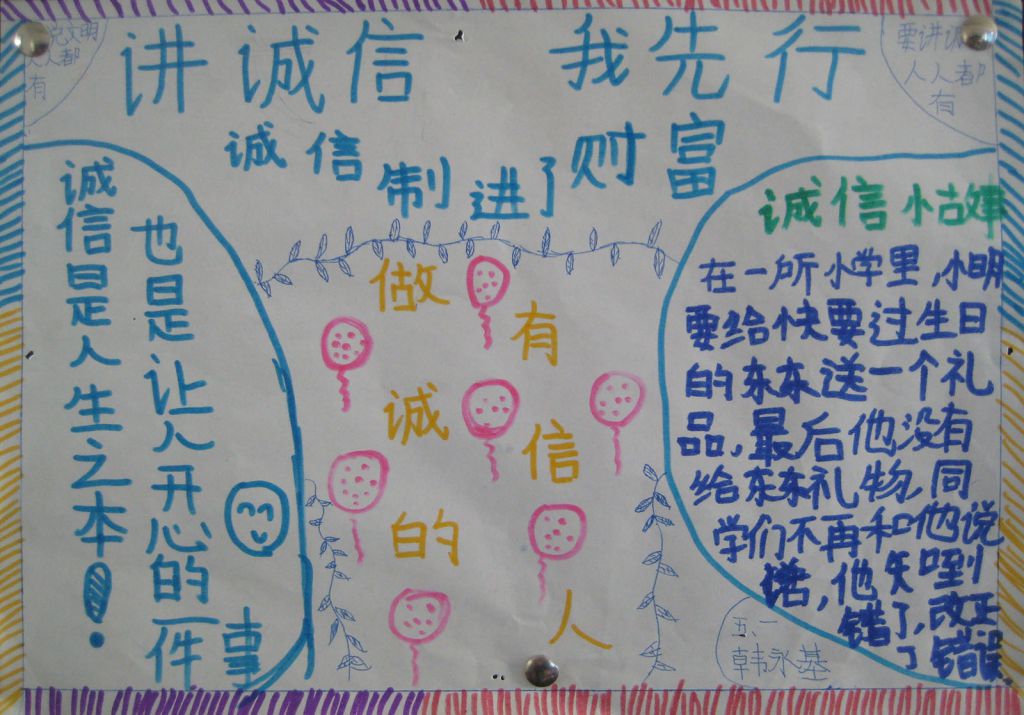 说文明
人人都
有
要讲诚
人人都
有
讲诚信 我先行
诚信制进了财富
诚信是人生之本!
也是让人开心的一件
事
做有
诚信
的人
诚信小故事
在一所小学里,小明
要给快要过生日
的东东送一个礼
品,最后他没有
给东东礼物,同
学们不再和他说
话,他知到
错了,改正
了错误
五、一
韩咏基